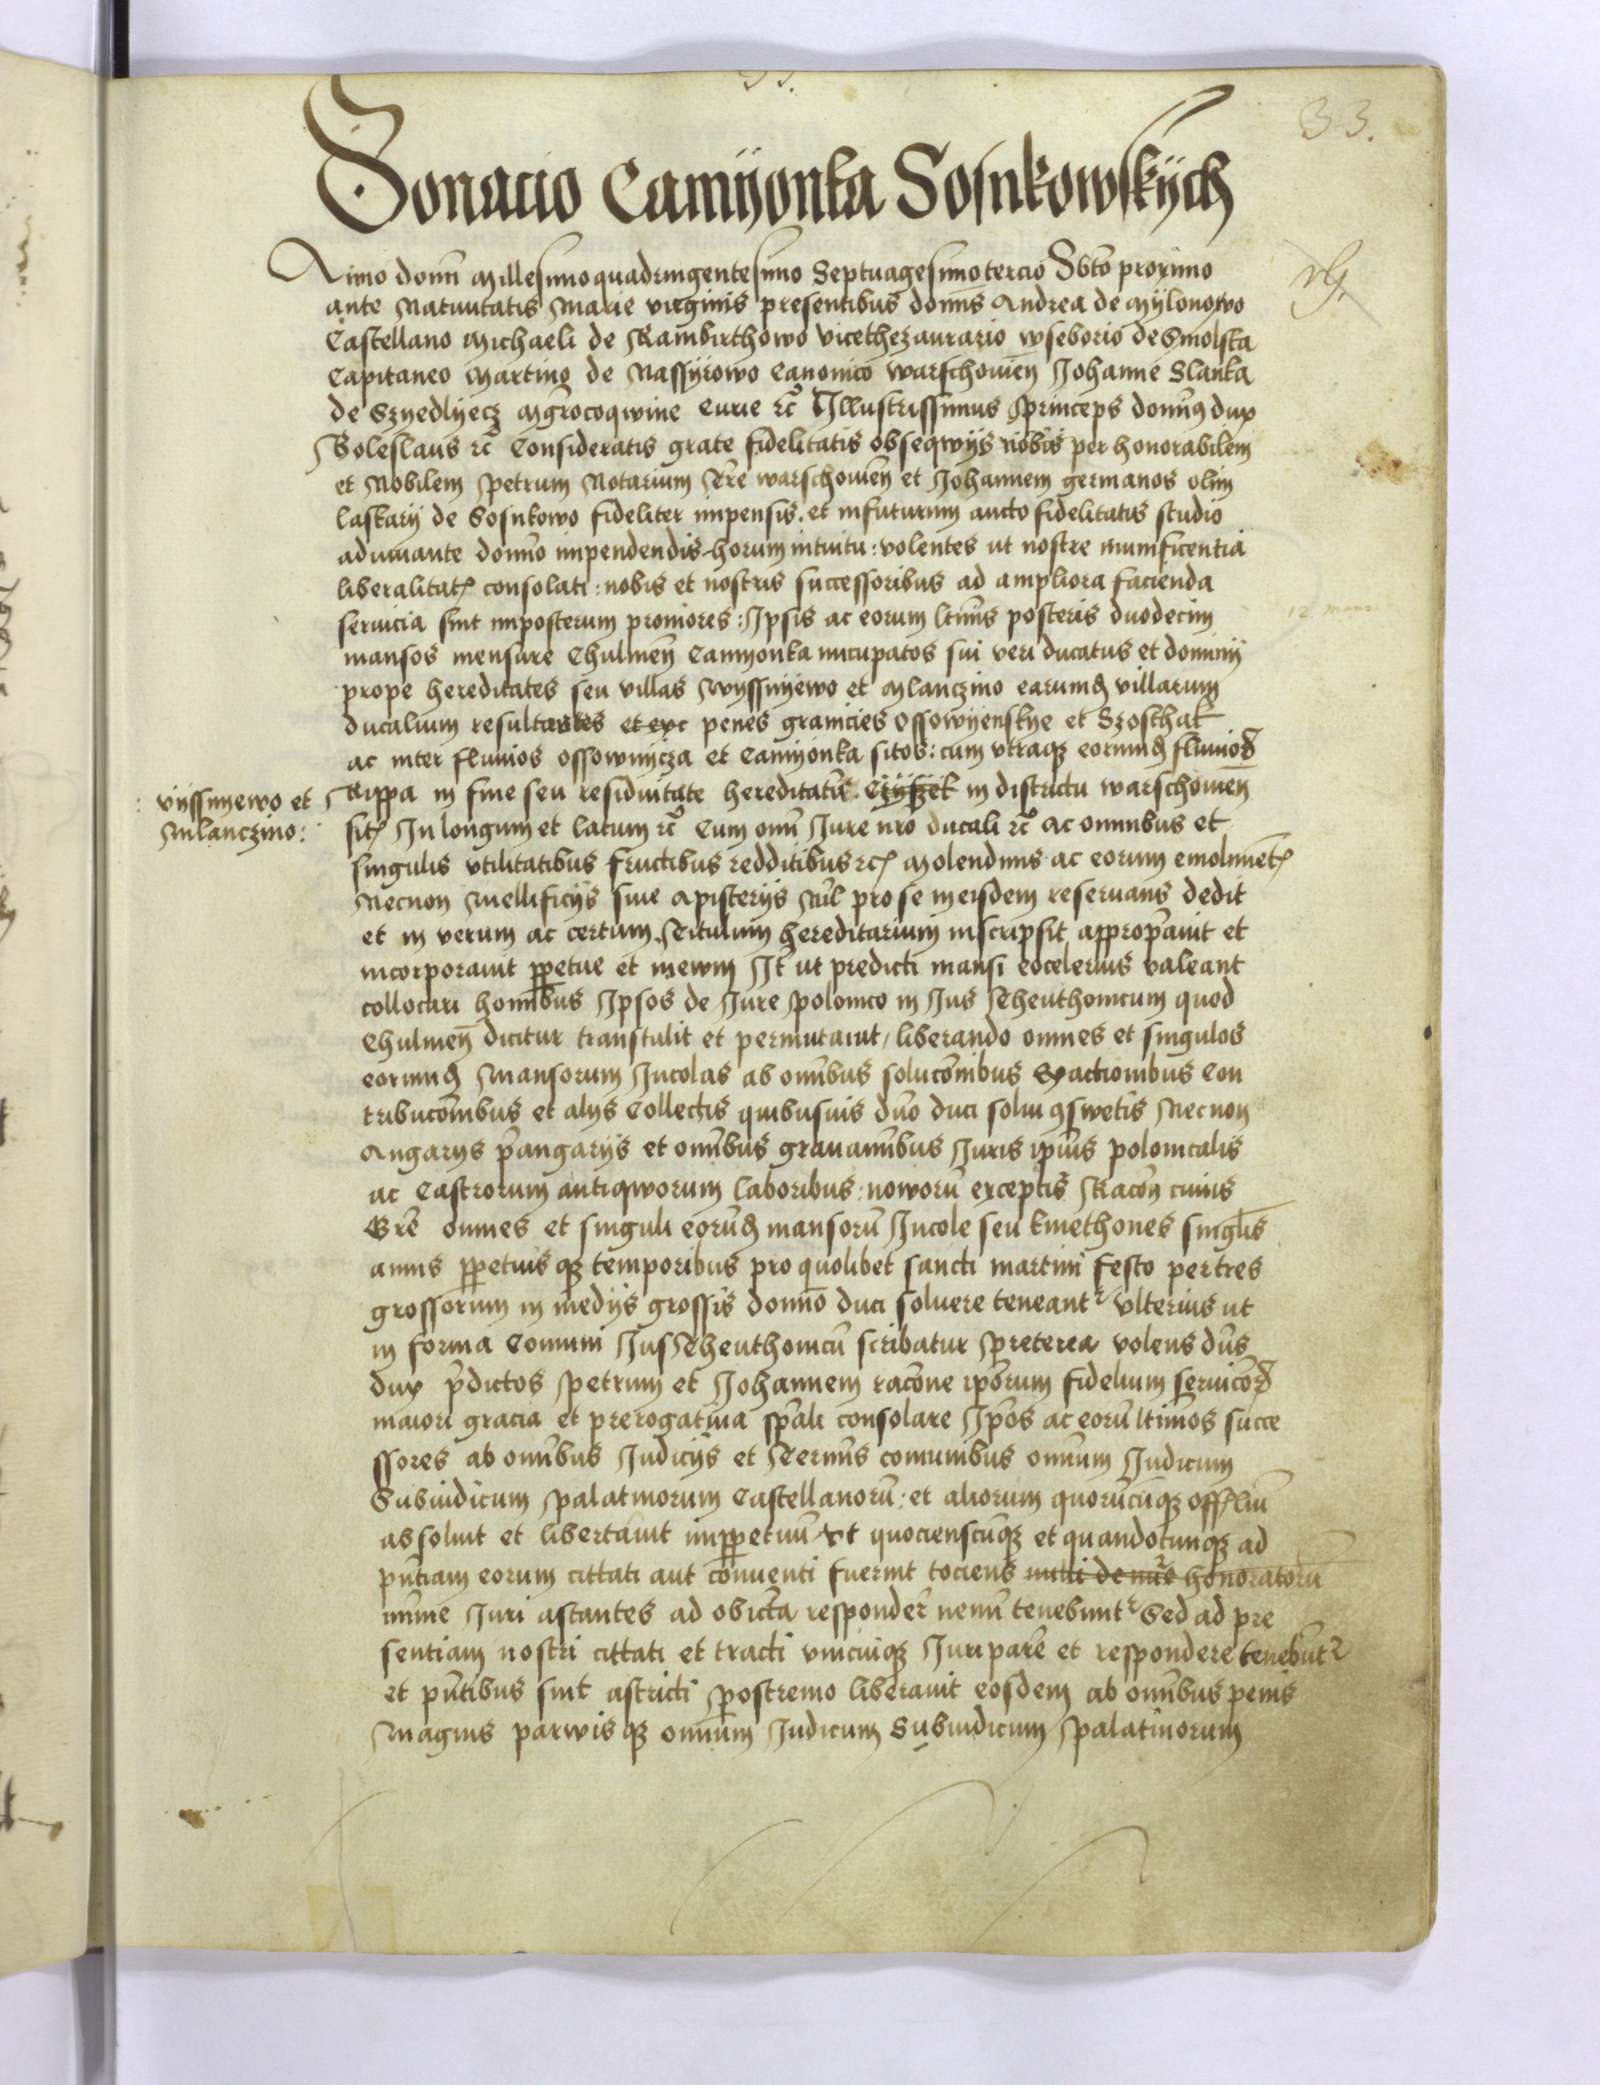 33.
Donacio Camyonka Sosnkowskych
Anno domi Millesimoquadringentesimo Septuagesimotercio Sbto proximo
ante Natiuitatis Marie virginis presentibus domis Andrea de Mylonowo
Castellano Michaeli de Rambirthowo vicethezaurario wseborio de Smolska
Capitaneo Martino de Nassyrowo Canonico warschouien Johanne Slanka
de Sznedlyecz mgrocoqwine Curie rc Illustrissimus princeps domus dux
Boleslaus rc Consideratis grate fidelitatis obseqwys nobis per honorabilem
et Nobilem petrum Notarium Tre warschouien et Johannem germanos olim
laskary de Sosnkowo fideliter impensis. et infuturum aucto fidelitatis studio
adiuuante domno impendendis horum intuitu: volentes ut nostre munificentia
liberalitatis consolati: nobis et nostris successoribus ad ampliora facienda
12 mans
seruicia sint imposterum proniores: Ipsis ac eorum ltimis posteris duodecim
mansos mensure Chulmen Camyonka nucupatos sui veri ducatus et dominy
prope hereditates seu villas wyssnyewo et Mlanczino earumd villarum
ducalium resultantes et exc penes granicies Ossowyenskye et Szosthak
ac inter fluuios ossownycza et Camyonka sitos: cum vtraqz eorumd fluuior
vyssnyewo et
Mlanczino:
Rippa in fine seu residuitate hereditatis Czyszek in districtu warschouien
sitis In longum et latum rc Cum omni Jure nro ducali rc Ac omnibus et
singulis vtilitatibus fructibus redditibus rc Molendinis ac eorum emolimetis
Necnon Mellificys siue Apisterys Nil pro se in eisdem reseruans dedit
et in verum ac certum Titulum hereditarium inscripsit appropauit et
incorporauit ppetue et in ewm It ut predicti mansi eocelerius valeant
collocari homibus Ipsos de Jure polonico in Jus Theuthonicum quod
Chulmen dicitur transtulit et permutauit, liberando omnes et singulos
eorumd Mansorum Incolas ab omibus solucombus Exactionibus Con
tribucombus et alys Collectis quibusuis duo duci solui gswetis Necnon
Angarys pangarys et omibus grauamibus Juris ipius polonicalis
ac Castrorum antiqworum laboribus: noworu exceptis Racon cuius
Gre omnes et singuli eorud mansoru Incole seu kmethones singlis
annis ppetuis qz temporibus pro quolibet sancti martini festo per tres
grossorum in medys grossis domno duci soluere teneant vlterius ut
in forma Comuni Jus Theuthonicu scribatur Preterea volens dus
dux pdictos petrum et Johannem racone iporum fidelium seruicor
maiori gracia et prerogatiua spali consolare Ipos ac eoru ltimos succe
ssores ab omibus Judicys et Termis comunibus omium Judicum
Subiudicum palatinorum Castellanoru: et aliorum quorucuqz offliu
absoluit et libertauit imppetuu Vt quocienscuqz et quandocunqz ad
pntiam eorum cittati aut conuenti fuerint tociens honoratoru
minime Juri astantes ad obiecta responder nemi tenebunt Sed ad pre
sentiam nostri cittati et tracti vnicuiqz Juri pare et respondere tenebut
et pntibus sint astricti Postremo liberauit eosdem ab omibus penis
Magnis parwis qz omium Judicum Subiudicum palatinorum